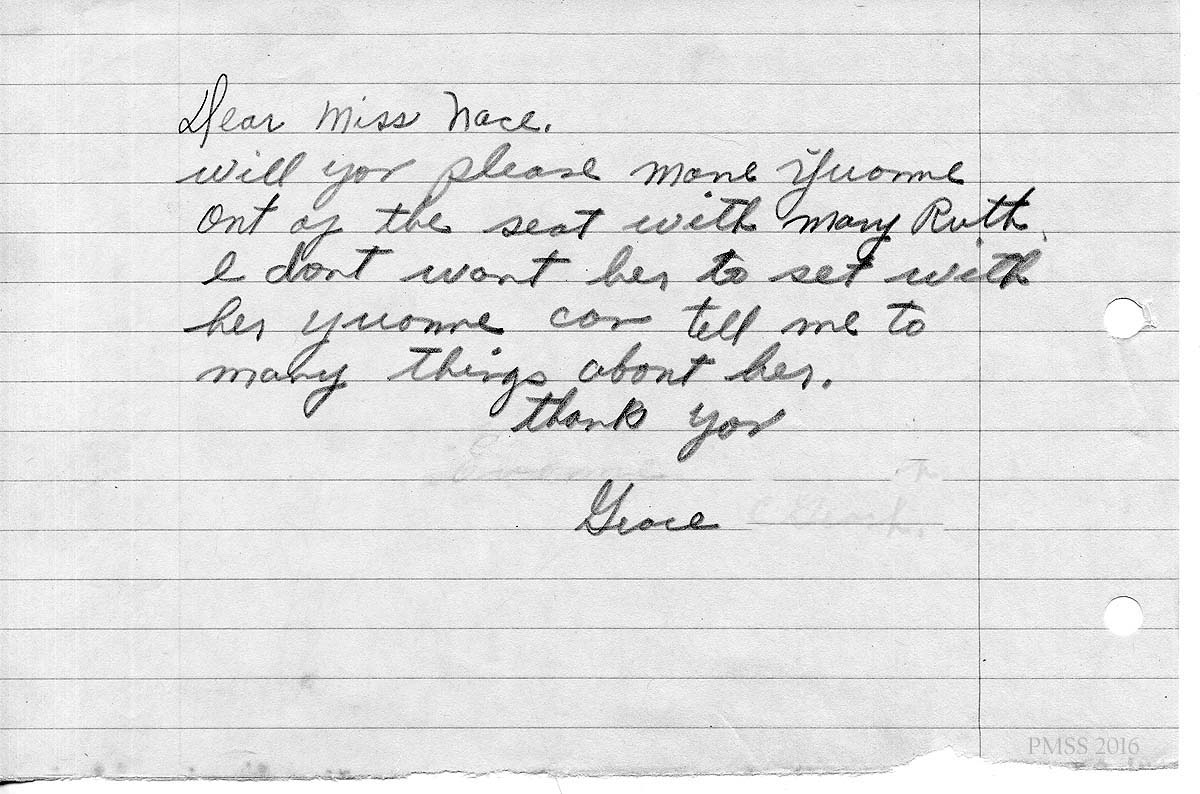 Dear Miss Nace.
will you please move Yvonne
out of the seat with Mary Ruth.
I dont want her to set with
her yvonne can tell me to
many things about her.
thank you
Grace
PMSS 2016